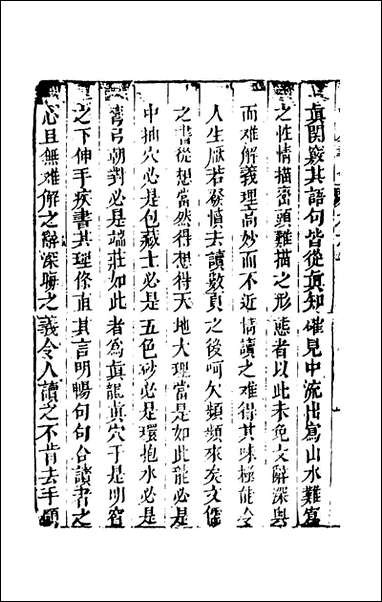 眞関竅其語句皆從眞知確見中流出寫山水難寫
之性情描密頭難描之形態者以此未免文辭深奥
而难解義理高妙而不近情讀之难得其味極能令
人生厭若發憤去讀數頁之後呵欠頻頻來矣文儒
之書從想當然得想得天地大理當是如此龍必是
中抽穴必是包藏土必是五色砂必是環抱水必是
彎弓朝對必是端莊如此者爲眞龍眞穴于是明窓
之下伸手疾書其理條直其言明暢句句合讀書之
心且無难解之辭深晦之義令人讀之不肯去手願